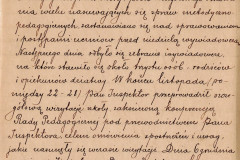 nia wiele nanoszących się spraw metodyczno
pedagogicznych, zastanawiano się nad sprawowaniem
i postępami uczniów przed niedzielą wywiadową.
Następnego dnia odbyło się zebranie wywiadowe,
na które stawiło się około trzystu osób - rodziców
i opiekunów dziatwy. W końcu listopada /po-
między 22 - 28/ Pan Inspektor przeprowadził szcze-
gółową wizytację szkoły zakończoną konferencją
Rady Pedagogicznej pod przewodnictwem Pana
Inspektora celem omówienia spostrzeżeń i uwag,
jakie nasunęły się w czasie wizytacji. Dnia 6 grudnia